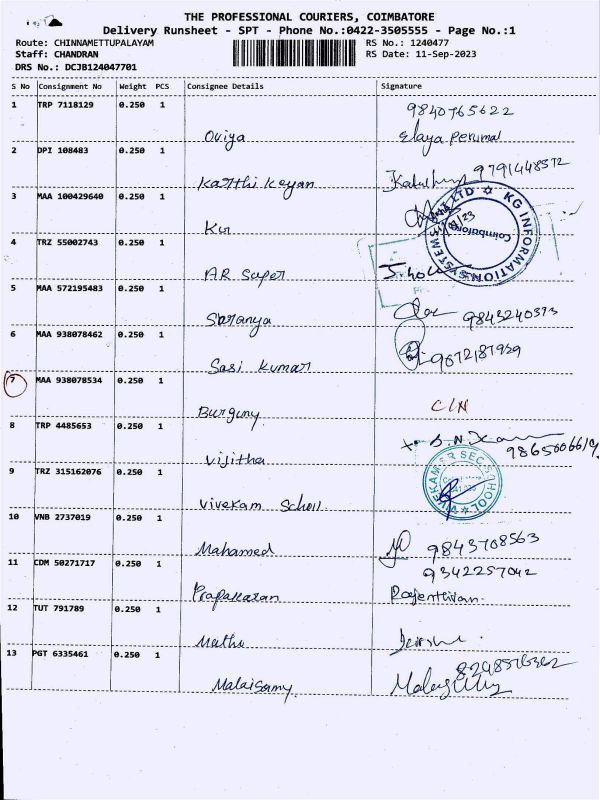 THE PROFESSIONAL COURIERS, COIMBATORE
Delivery Runsheet - SPT - Phone No.:0422-3505555 - Page No.:1
Route: CHINNAMETTUPALAYAM RS No.: 1240477
Staff: CHANDRAN RS Date: 11-Sep-2023
DRS No.: DCJB124047701
S No Consignment No Weight PCS Consignee Details Signature
1 TRP 7118129 0.250 1 9840765622
Oviya Elaya perumal
2 DPI 108483 0.250 1 9791448572
Karthi Keyan
3 MAA 100429640 0.250 1
KG INFORMATION SYSTEM LTD
Coimbatore
4 TRZ 55002743 0.250 1
A.R Super
5 MAA 572195483 0.250 1
Saranya 9843240373
6 MAA 938078462 0.250 1
Sasi Kumar
7 MAA 938078534 0.250 1 C/N
8 TRP 4485653 0.250 1
Vijitha
9 TRZ 315162076 0.250 1
SEC SCHOOL
Vivekam School.
10 VNB 2737019 0.250 1
Mahamed 9843708563
11 CDM 50271717 0.250 1 9342257042
Prapakaran
12 TUT 791789 0.250 1
13 PGT 6335461 0.250 1
Malaisamy